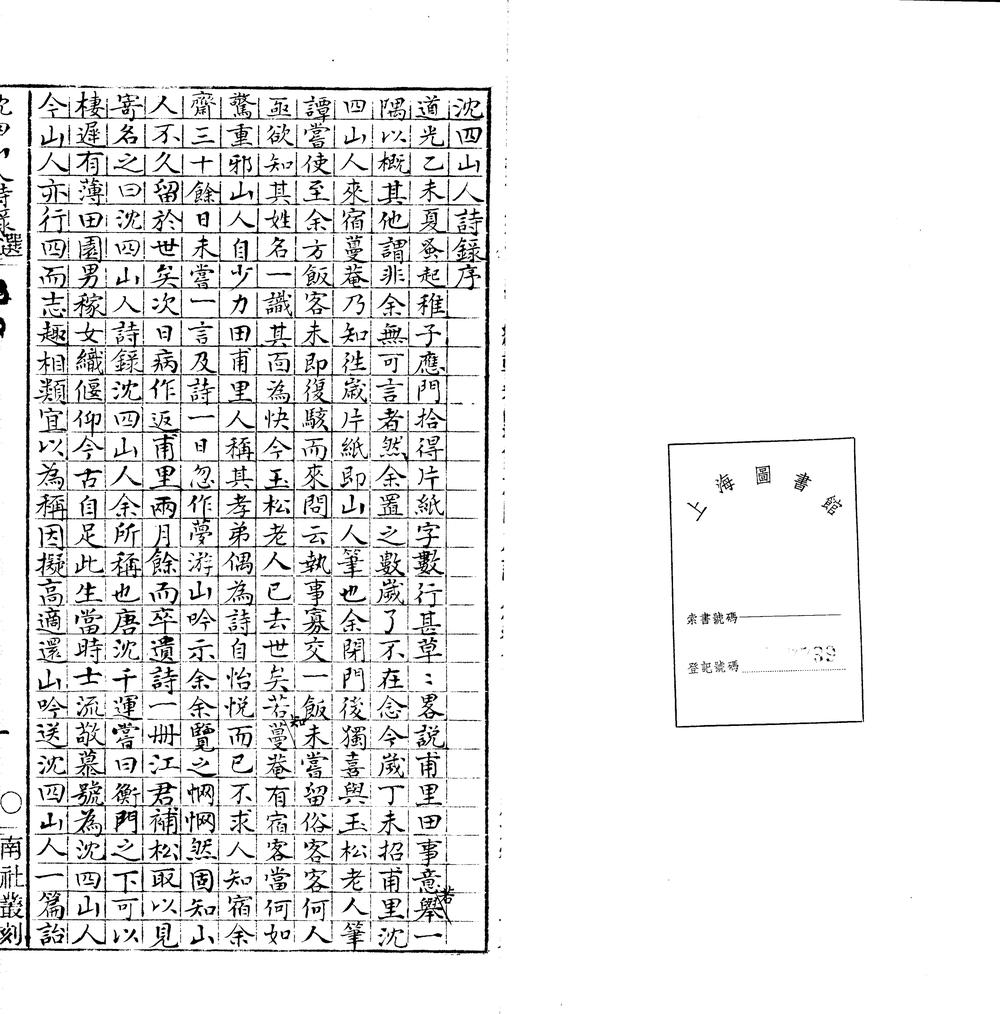 上海圖書館
索書號碼
登記號碼
39
沈四山人詩錄序
道光乙未夏蚤起稚子應門拾得片紙字數行甚草〻畧說甫里田事意舉一
若
隅以概其他謂非余無可言者然余置之數歲了不在念今歲丁未招甫里沈
四山人來宿蔓菴乃知徃歲片紙即山人筆也余閉門後獨喜與玉松老人筆
譚嘗使至余方飯客未即復駭而來問云執事寡交一飯未嘗留俗客客何人
亟欲知其姓名一識其面為快今玉松老人已去世矣若蔓菴有宿客當何如
知
驚重邪山人自少力田甫里人稱其孝弟偶為詩自怡悅而已不求人知宿余
齋三十餘日未嘗一言及詩一日忽作夢游山吟示余余覽之惘惘然固知山
人不久留於世矣次日病作返甫里兩月餘而卒遺詩一冊江君補松取以見
寄名之曰沈四山人詩錄沈四山人余所稱也唐沈千運嘗曰衡門之下可以
棲遲有薄田園男稼女織偃仰今古自足此生當時士流敬慕號為沈四山人
今山人亦行四而志趣相類宜以為稱因擬高適還山吟送沈四山人一篇詒
沈四山人詩錄選
一
南社叢刻